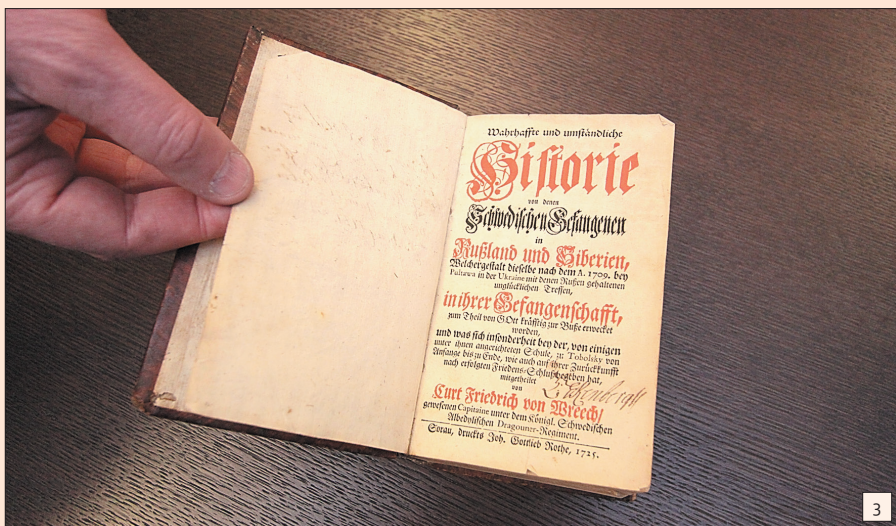 Wahrhaffte und umständliche
Historie
von denen
Schwedischen Gefangenen
in
Rußland und Siberien,
Welchergestalt dieselbe nach dem A. 1709. bey
Pultawa in der Ukraine mit denen Rußen gehaltenen
unglücklichen Treffen,
in ihrer Gefangenschafft,
zum Theil von GOtt kräfftig zur Buße erwecket
worden,
und was sich insonderheit bey der, von einigen
unter ihnen angerichteten Schule, zu Tobolsky von
Anfange bis zu Ende, wie auch auf ihrer Zurückkunfft
nach erfolgten Friedens-Schluß begeben hat,
mitgetheilet
von
Curt Friedrich von Wreech/
gewesenen Capitaine unter dem Königl. Schwedischen
Albedylischen Dragouner-Regiment.
Sorau, druckts Joh. Gottlieb Rothe, 1725.
3